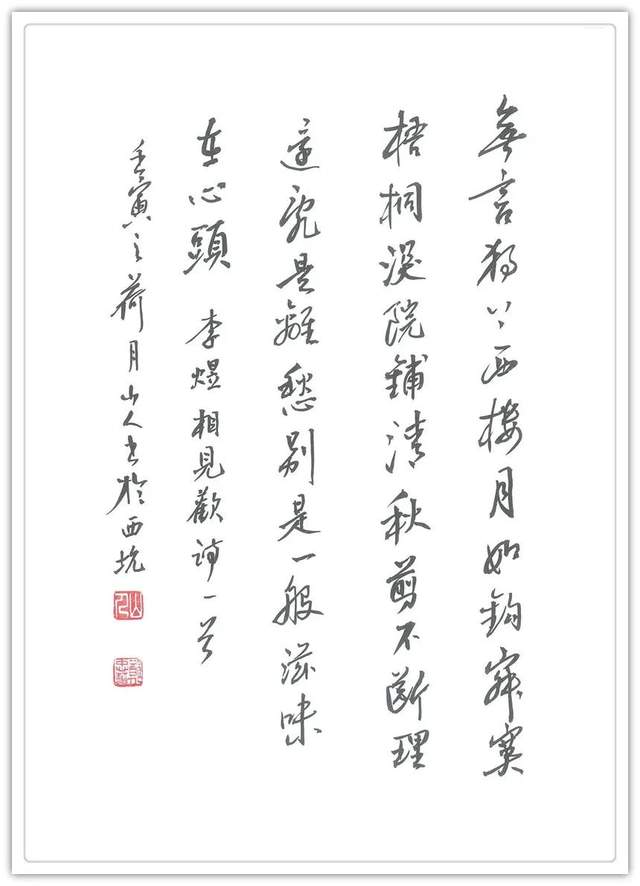 無言獨上西樓月如鉤寂寞
梧桐深院鎖清秋剪不斷理
還亂是離愁別是一般滋味
在心頭 李煜相見歡詞一首
壬寅之荷月山人書於西坑
山人